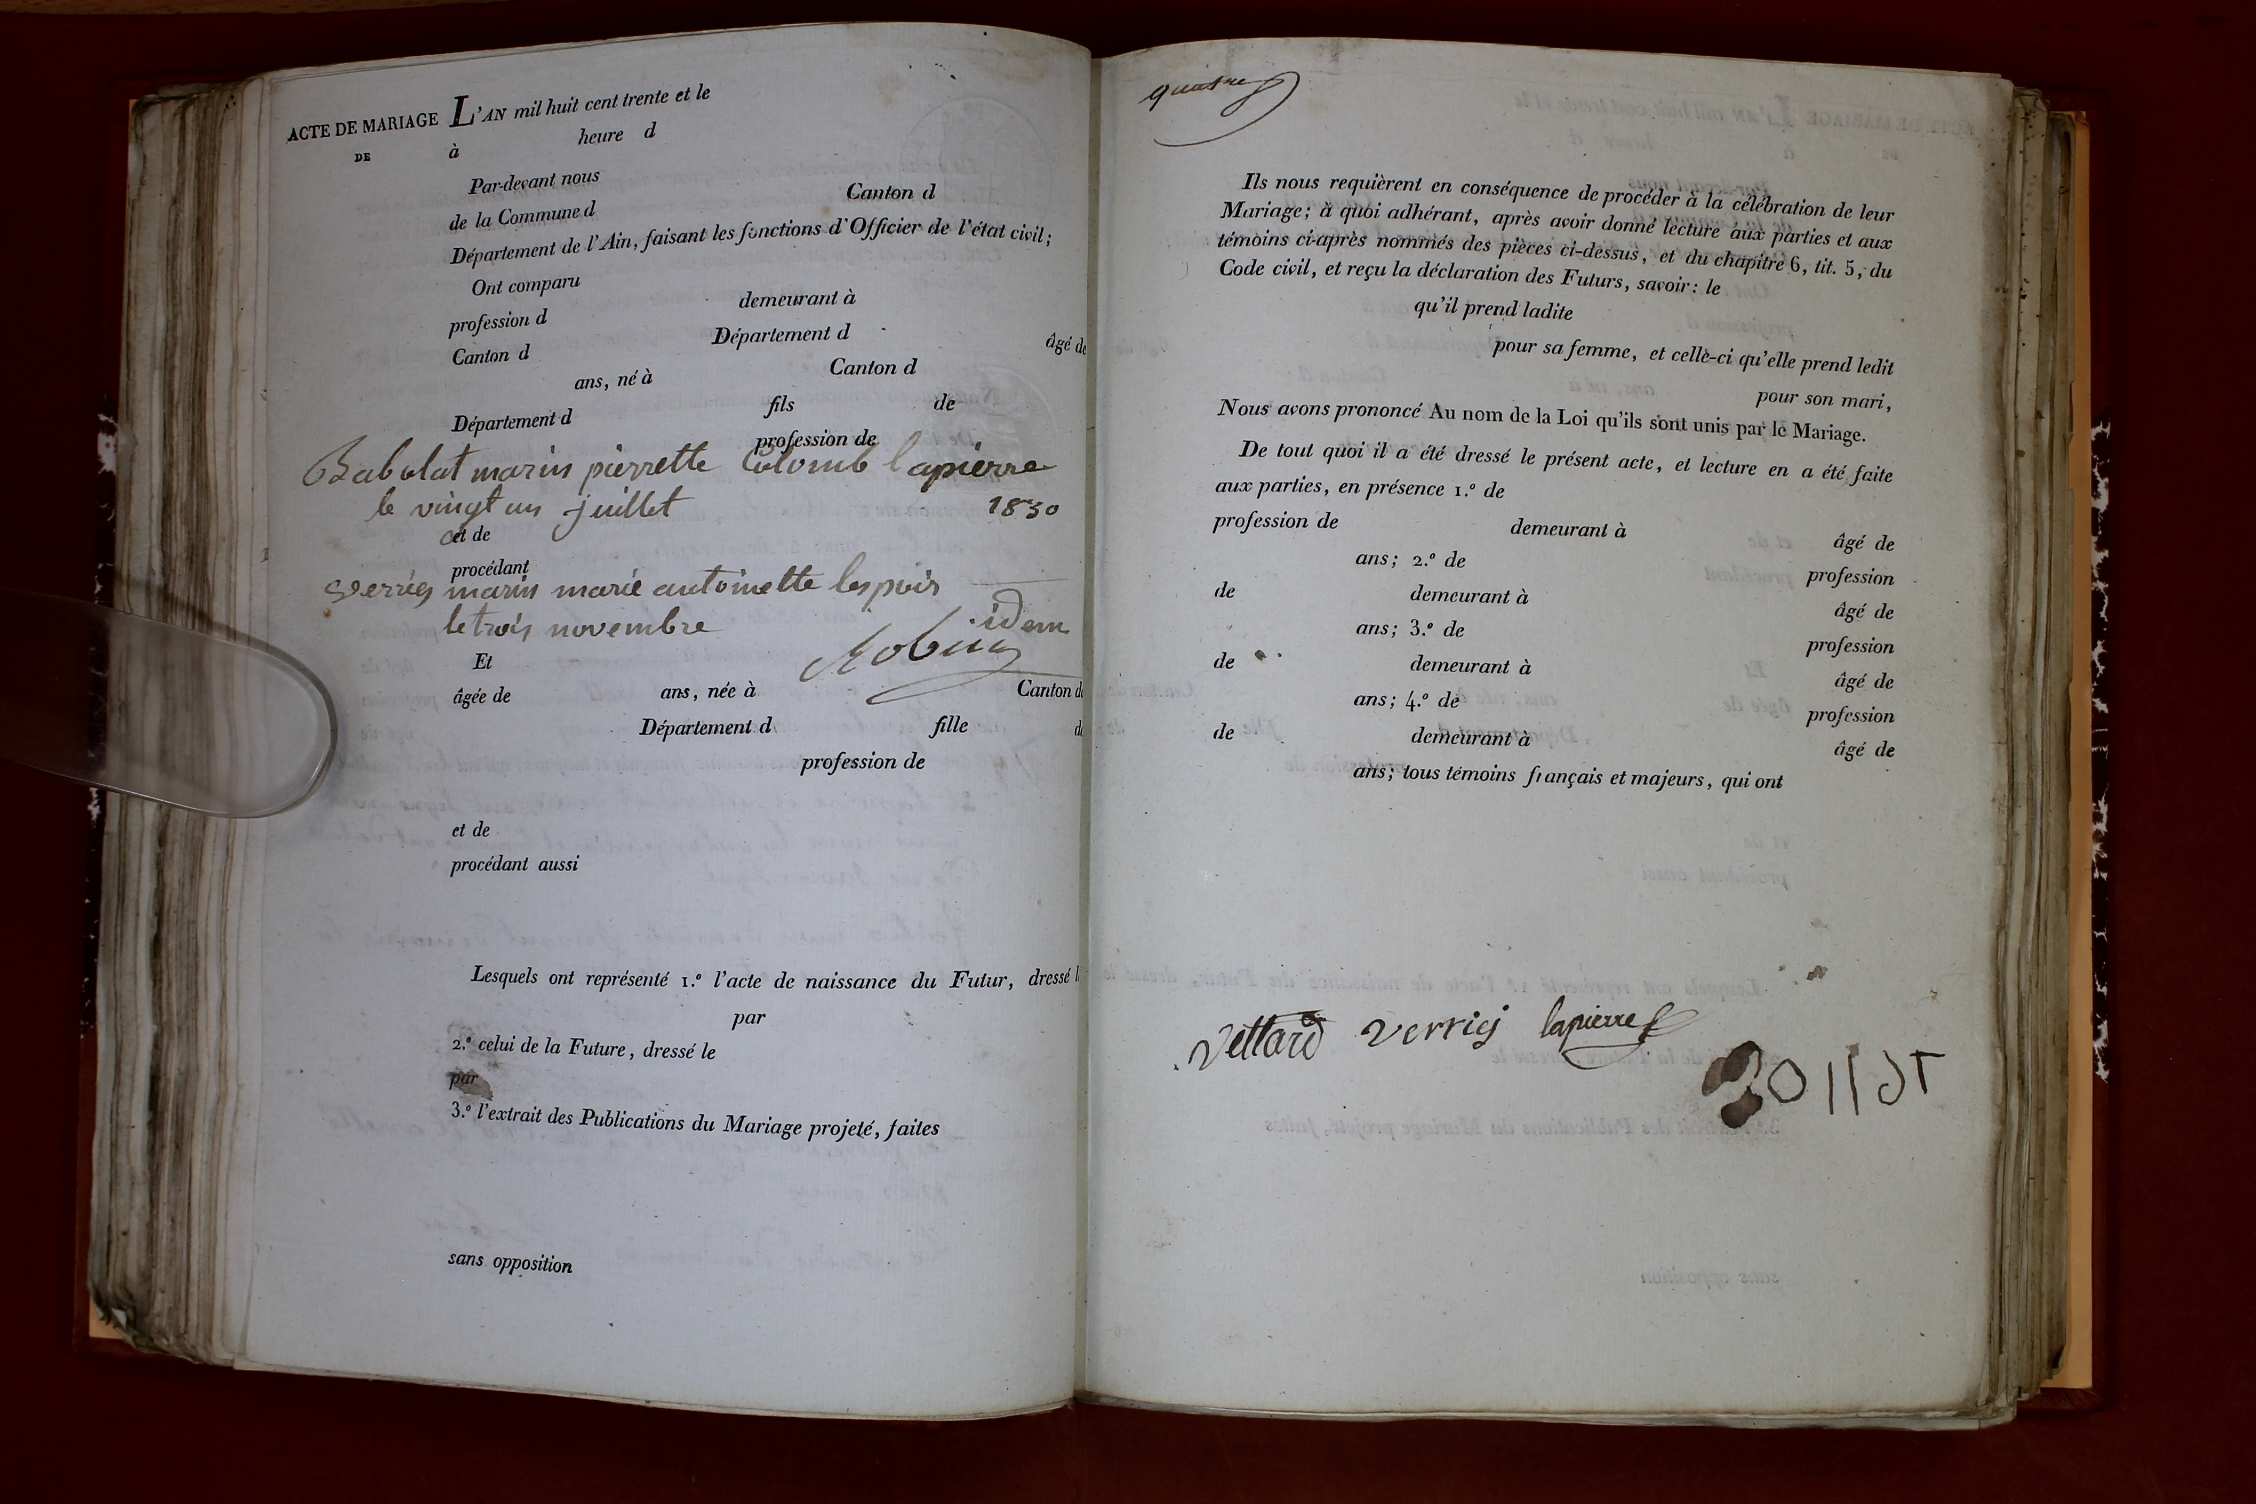 ACTE DE MARIAGE L'AN mil huit cent trente et le
DE à heure d
Par-devant nous
de la Commune d Canton d
Département de l'Ain, faisant les fonctions d'Officier de l'état civil;
Ont comparu
profession d demeurant à
Canton d Département d âgé de
ans, né à Canton d
Département d fils de
profession de
Babolat marin pierrette Colomb lapierre
le vingt un juillet 1830
et de
procédant
verries marin marie antoinette
le trois novembre idem
Robin
Et
âgée de ans, née à Canton d
Département d fille d
profession de
et de
procédant aussi
Lesquels ont représenté 1.º l'acte de naissance du Futur, dressé l
par
2.º celui de la Future, dressé le
par
3.º l'extrait des Publications du Mariage projeté, faites
sans opposition
quatre
Ils nous requièrent en conséquence de procéder à la célébration de leur
Mariage; à quoi adhérant, après avoir donné lecture aux parties et aux
témoins ci-après nommés des pièces ci-dessus, et du chapitre 6, tit. 5, du
Code civil, et reçu la déclaration des Futurs, savoir: le
qu'il prend ladite
pour sa femme, et celle-ci qu'elle prend ledit
pour son mari,
Nous avons prononcé Au nom de la Loi qu'ils sont unis par le Mariage.
De tout quoi il a été dressé le présent acte, et lecture en a été faite
aux parties, en présence 1.º de
profession de demeurant à âgé de
ans; 2.º de profession
de demeurant à âgé de
ans; 3.º de profession
de demeurant à âgé de
ans; 4.º de profession
de demeurant à âgé de
ans; tous témoins français et majeurs, qui ont
vettard verries lapierre